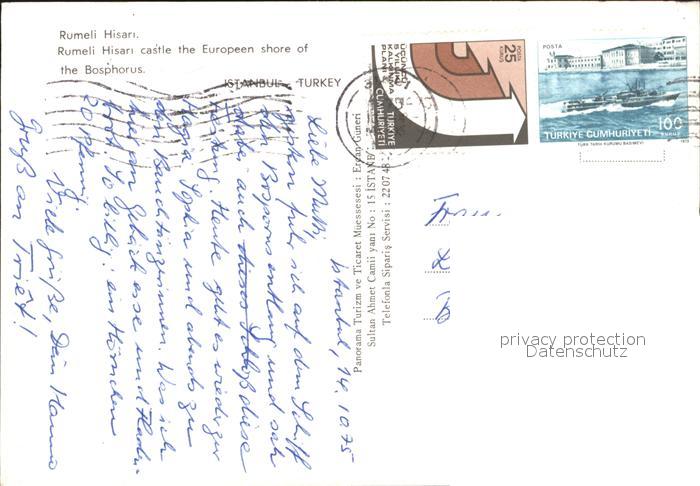 Rumeli Hisarı.
Rumeli Hisarı castle the Europeen shore of
the Bosphorus.
ISTANBUL - TURKEY
POSTA
25
KURUŞ
ÜÇÜNCÜ
5 YILLIK
KALKINMA
PLANI
TÜRKİYE
CUMHURİYETİ
POSTA
TÜRKİYE CUMHURİYETİ
100
KURUŞ
TÜRK TARİH KURUMU BASIMEVİ
Panorama Turizm ve Ticaret Muessesesi : Ergan Güneri
Sultan Ahmet Camii yanı No : 15 İSTANB
Telefonla Sipariş Servisi : 220748
Istanbul, 14.10.75
Liebe Mutti,
gestern fuhr ich auf dem Schiff
den Bosporus entlang und sah
auch dieses Schloß diese
Festung. Heute geht es wieder zur
Hagia Sophia und abends zu
den Bauchtänzerinnen. Was ich
hier an Gebäck esse und
so billig, ein Hörnchen
20 Pfennig.
Viele Grüße, Dein Hanno
Gruß an Trief!
privacy protection
Datenschutz